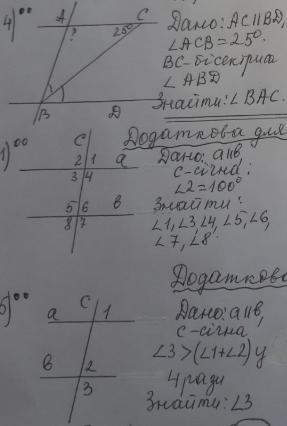 4)°°
A C
? 25°
B D
Дано: AC||BD,
∠ACB=25°.
BC-бісектриса
∠ABD
Знайти: ∠BAC.
Додаткова для
1)°°
C
2 1 a
3 4
5 6 b
8 7
Дано: a||b,
c-січна;
∠2=100°
Знайти:
∠1,∠3,∠4,∠5,∠6,
∠7,∠8.
Додаткова
5)°°
C
a 1
b 2
3
Дано: a||b,
c-січна
∠3>(∠1+∠2) у
4 рази
Знайти: ∠3